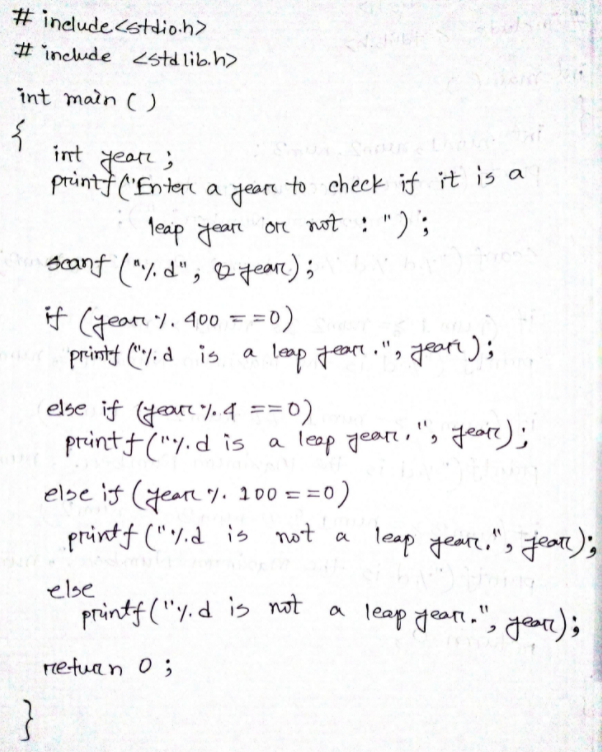 # include<stdio.h>
# include <stdlib.h>
int main ( )
{
int year ;
printf("Enter a year to check if it is a
leap year or not : ") ;
scanf ("%d", &year);
if (year % 400 ==0)
printf ("%d is a leap year.", year);
else if (year % 4 ==0)
printf ("%d is a leap year.", year);
else if (year % 100 ==0)
printf ("%d is not a leap year.", year);
else
printf ("%d is not a leap year.", year);
return 0 ;
}